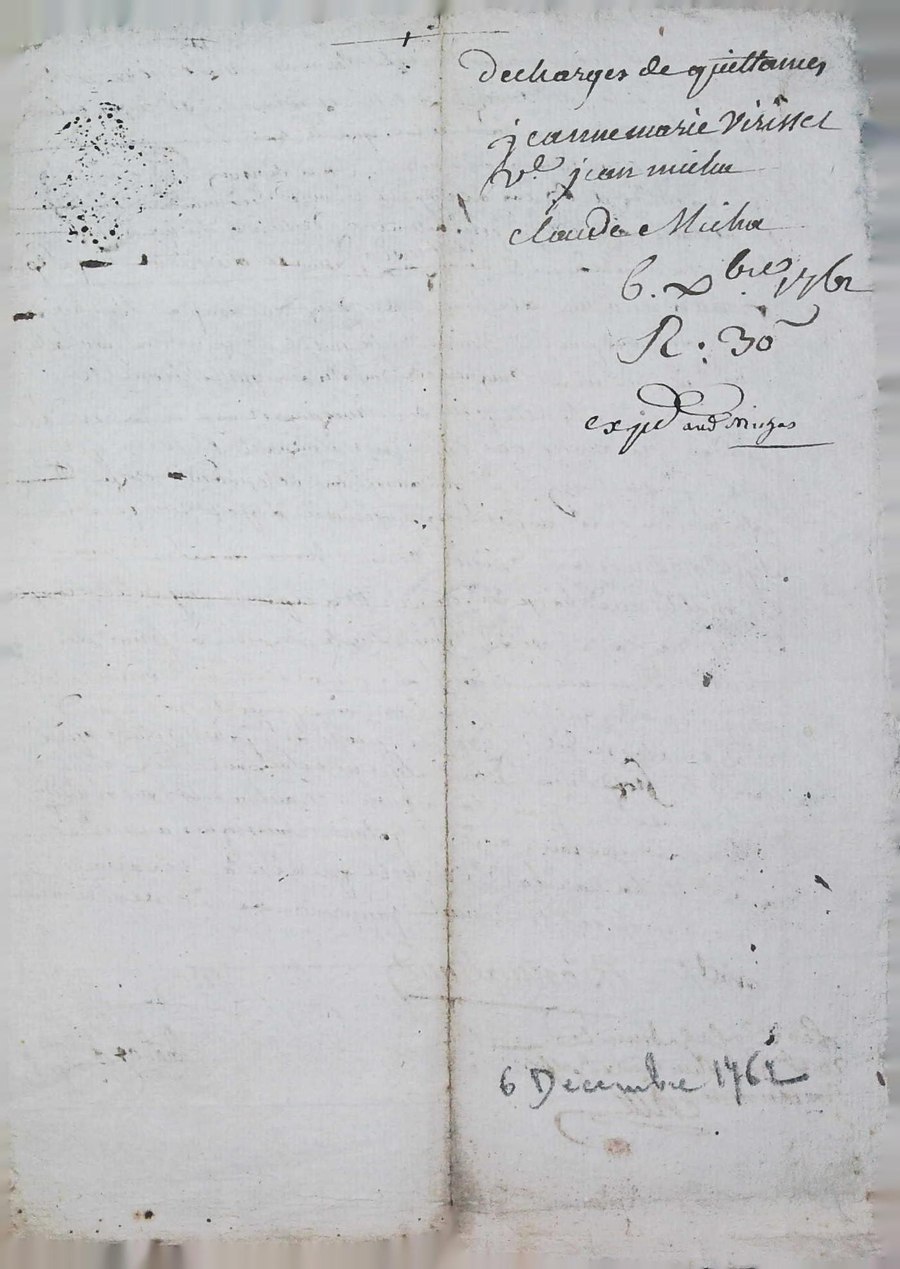 decharges de quittances
jeannemarie Virisset
ve. jean micha
claude Micha
6. xbre. 1762
R: 30
expd
6 Decembre 1762